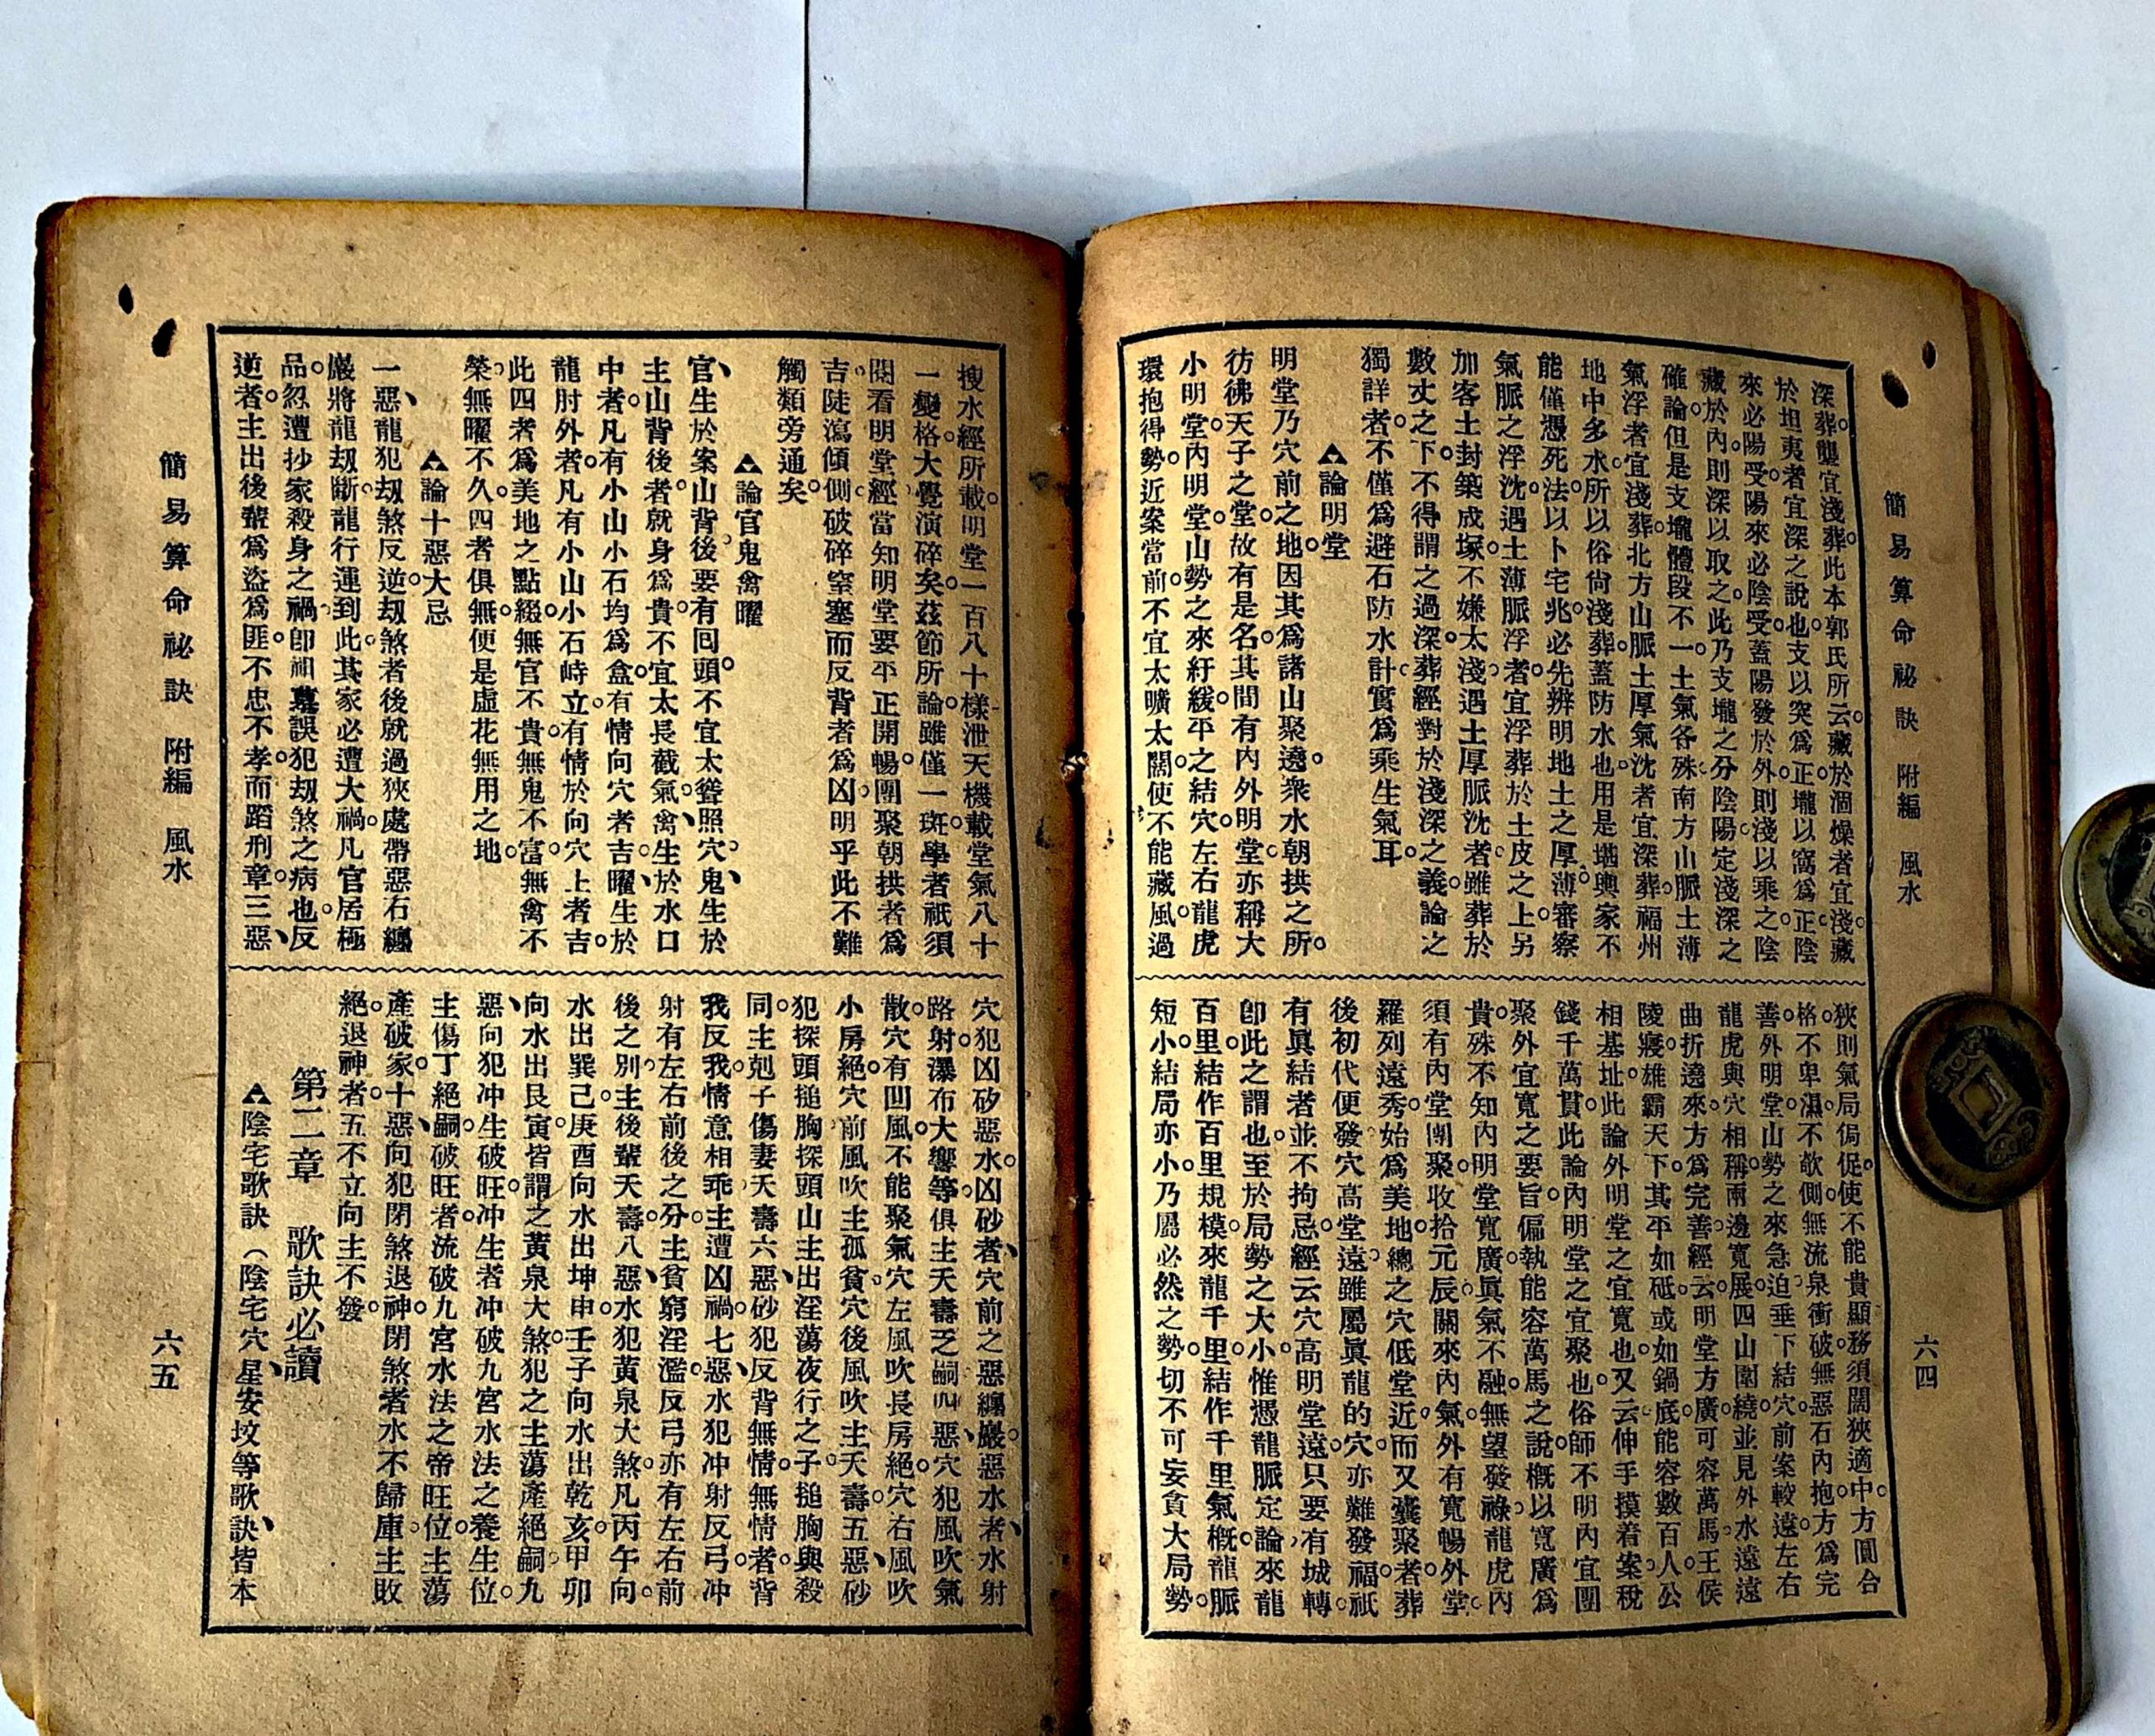 簡易算命祕訣 附編 風水
六四
深葬壟宜淺葬。此本郭氏所云。藏於涸燥者宜淺。藏
於坦夷者宜深之說也。支以突爲正。壠以窩爲正。陰
來必陽受。陽來必陰受。蓋陽發於外。則淺以乘之。陰
藏於內。則深以取之。此乃支壠之分陰陽。定淺深之
確論。但是支壠體段不一。土氣各殊。南方山脈土薄
氣浮者宜淺葬。北方山脈土厚氣沈者宜深葬。福州
地中多水。所以俗尙淺葬。蓋防水也。用是堪輿家不
能僅憑死法。以卜宅兆。必先辨明地土之厚薄。審察
氣脈之浮沈。遇土薄脈浮者。宜浮葬於土皮之上。另
加客土。封築成塚。不嫌太淺。遇土厚脈沈者。雖葬於
數丈之下。不得謂之過深。葬經對於淺深之義。論之
獨詳者。不僅爲避石防水計。實爲乘生氣耳。
▲論明堂
明堂乃穴前之地。因其爲諸山聚遶。衆水朝拱之所。
彷彿天子之堂。故有是名。其間有內外明堂。亦稱大
小明堂。內明堂山勢之來紆緩。平之結穴。左右龍虎
環抱得勢。近案當前。不宜太曠太闊。使不能藏風。過
狹則氣局侷促。使不能貴顯。務須闊狹適中。方圓合
格。不卑濕。不欹側。無流泉衝破。無惡石內抱。方爲完
善。外明堂山勢之來急迫。垂下結穴。前案較遠。左右
龍虎與穴相稱。兩邊寬展。四山圍繞。並見外水遠遠
曲折遶來。方爲完善。經云。明堂方廣可容萬馬。王侯
陵寢。雄霸天下。其平如砥。或如鍋底。能容數百人。公
相基址。此論外明堂之宜寬也。又云。伸手摸着案。稅
錢千萬貫。此論內明堂之宜聚也。俗師不明內宜團
聚。外宜寬之要旨。偏執能容萬馬之說。槪以寬廣爲
貴。殊不知內明堂寬廣。眞氣不融。無望發祿。龍虎內
須有內堂團聚。收拾元辰關來內氣。外有寬暢外堂。
羅列遠秀。始爲美地。總之穴低堂近。而又囊聚者。葬
後初代便發。穴高堂遠。雖屬眞龍的穴。亦難發福。祇
有眞結者。並不拘忌。經云。穴高明堂遠。只要有城轉。
卽此之謂也。至於局勢之大小。惟憑龍脈定論。來龍
百里。結作百里規模。來龍千里。結作千里氣槪。龍脈
短小。結局亦小。乃屬必然之勢。切不可妄貪大局勢。
搜水經所載。明堂一百八十樣。泄天機載堂氣八十
一變格。大覺演碎矣。茲節所論。雖僅一斑。學者祇須
閱看明堂經。當知明堂要平正開暢。團聚朝拱者爲
吉。陡瀉傾側。破碎窒塞。而反背者爲凶。明乎此。不難
觸類旁通矣。
▲論官鬼禽曜
官、生於案山背後。要有囘頭。不宜太聳照穴。鬼、生於
主山背後者。就身爲貴。不宜太長截氣。禽、生於水口
中者。凡有小山小石均爲盒。有情向穴者吉。曜、生於
龍肘外者。凡有小山小石峙立。有情於向穴上者吉。
此四者爲美地之點綴。無官不貴。無鬼不富。無禽不
榮。無曜不久。四者俱無。便是虛花無用之地。
▲論十惡大忌
一、惡龍犯刼煞反逆。刼煞者。後就過狹處帶惡石纏
巖。將龍刼斷。龍行運到此。其家必遭大禍。凡官居極
品。忽遭抄家殺身之禍。卽祖墓誤犯刼煞之病也。反
逆者。主出後輩爲盜爲匪。不忠不孝。而蹈刑章。三、惡
穴犯凶砂惡水。凶砂者、穴前之惡纏巖。惡水者、水射
路射。瀑布大響等。俱主夭壽乏嗣。四惡、穴犯風吹氣
散。穴有凹風。不能聚氣。穴左風吹長房絕。穴右風吹
小房絕。穴前風吹主孤貧。穴後風吹主夭壽。五惡、砂
犯探頭搥胸。探頭山主出淫蕩夜行之子。搥胸與殺
同。主剋子傷妻夭壽。六惡、砂犯反背無情。無情者。背
我反我。情意相乖。主遭凶禍。七惡、水犯冲射反弓。冲
射有左右前後之分。主貧窮淫濫。反弓亦有左右前
後之別。主後輩夭壽。八惡、水犯黃泉大煞。凡丙午向。
水出巽己。庚酉向水出坤申。壬子向水出乾亥。甲卯
向水出艮寅。皆謂之黃泉大煞。犯之主蕩產絕嗣。九
惡、向犯冲生破旺。冲生者冲破九宮水法之養生位。
主傷丁絕嗣。破旺者。流破九宮水法之帝旺位。主蕩
產破家。十惡、向犯閉煞退神。閉煞者水不歸庫。主敗
絕。退神者。五不立向。主不發。
第二章 歌訣必讀
▲陰宅歌訣（陰宅穴、星安坟等歌訣、皆本
簡易算命祕訣 附編 風水
六五